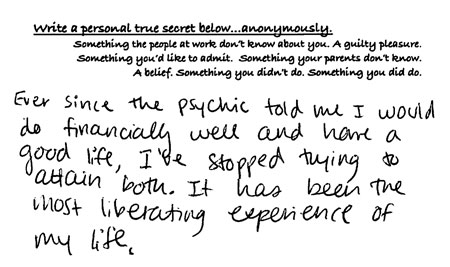 Write a personal true secret below...anonymously.
Something the people at work don't know about you. A guilty pleasure.
Something you'd like to admit. Something your parents don't know.
A belief. Something you didn't do. Something you did do.
Ever since the psychic told me I would
do financially well and have a
good life, I've stopped trying to
attain both. It has been the
most liberating experience of
my life.